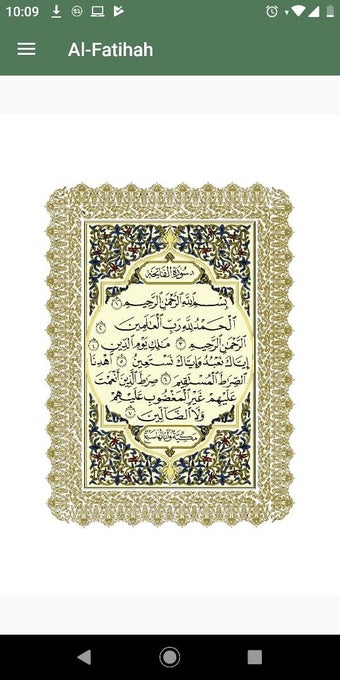 10:09
Al-Fatihah
١- سورة الفاتحة
بِسْمِ اللَّهِ الرَّحْمَٰنِ الرَّحِيمِ ١
الْحَمْدُ لِلَّهِ رَبِّ الْعَالَمِينَ ٢
الرَّحْمَٰنِ الرَّحِيمِ ٣ مَالِكِ يَوْمِ الدِّينِ ٤
إِيَّاكَ نَعْبُدُ وَإِيَّاكَ نَسْتَعِينُ ٥ اهْدِنَا
الصِّرَاطَ الْمُسْتَقِيمَ ٦ صِرَاطَ الَّذِينَ أَنْعَمْتَ
عَلَيْهِمْ غَيْرِ الْمَغْضُوبِ عَلَيْهِمْ
وَلَا الضَّالِّينَ ٧